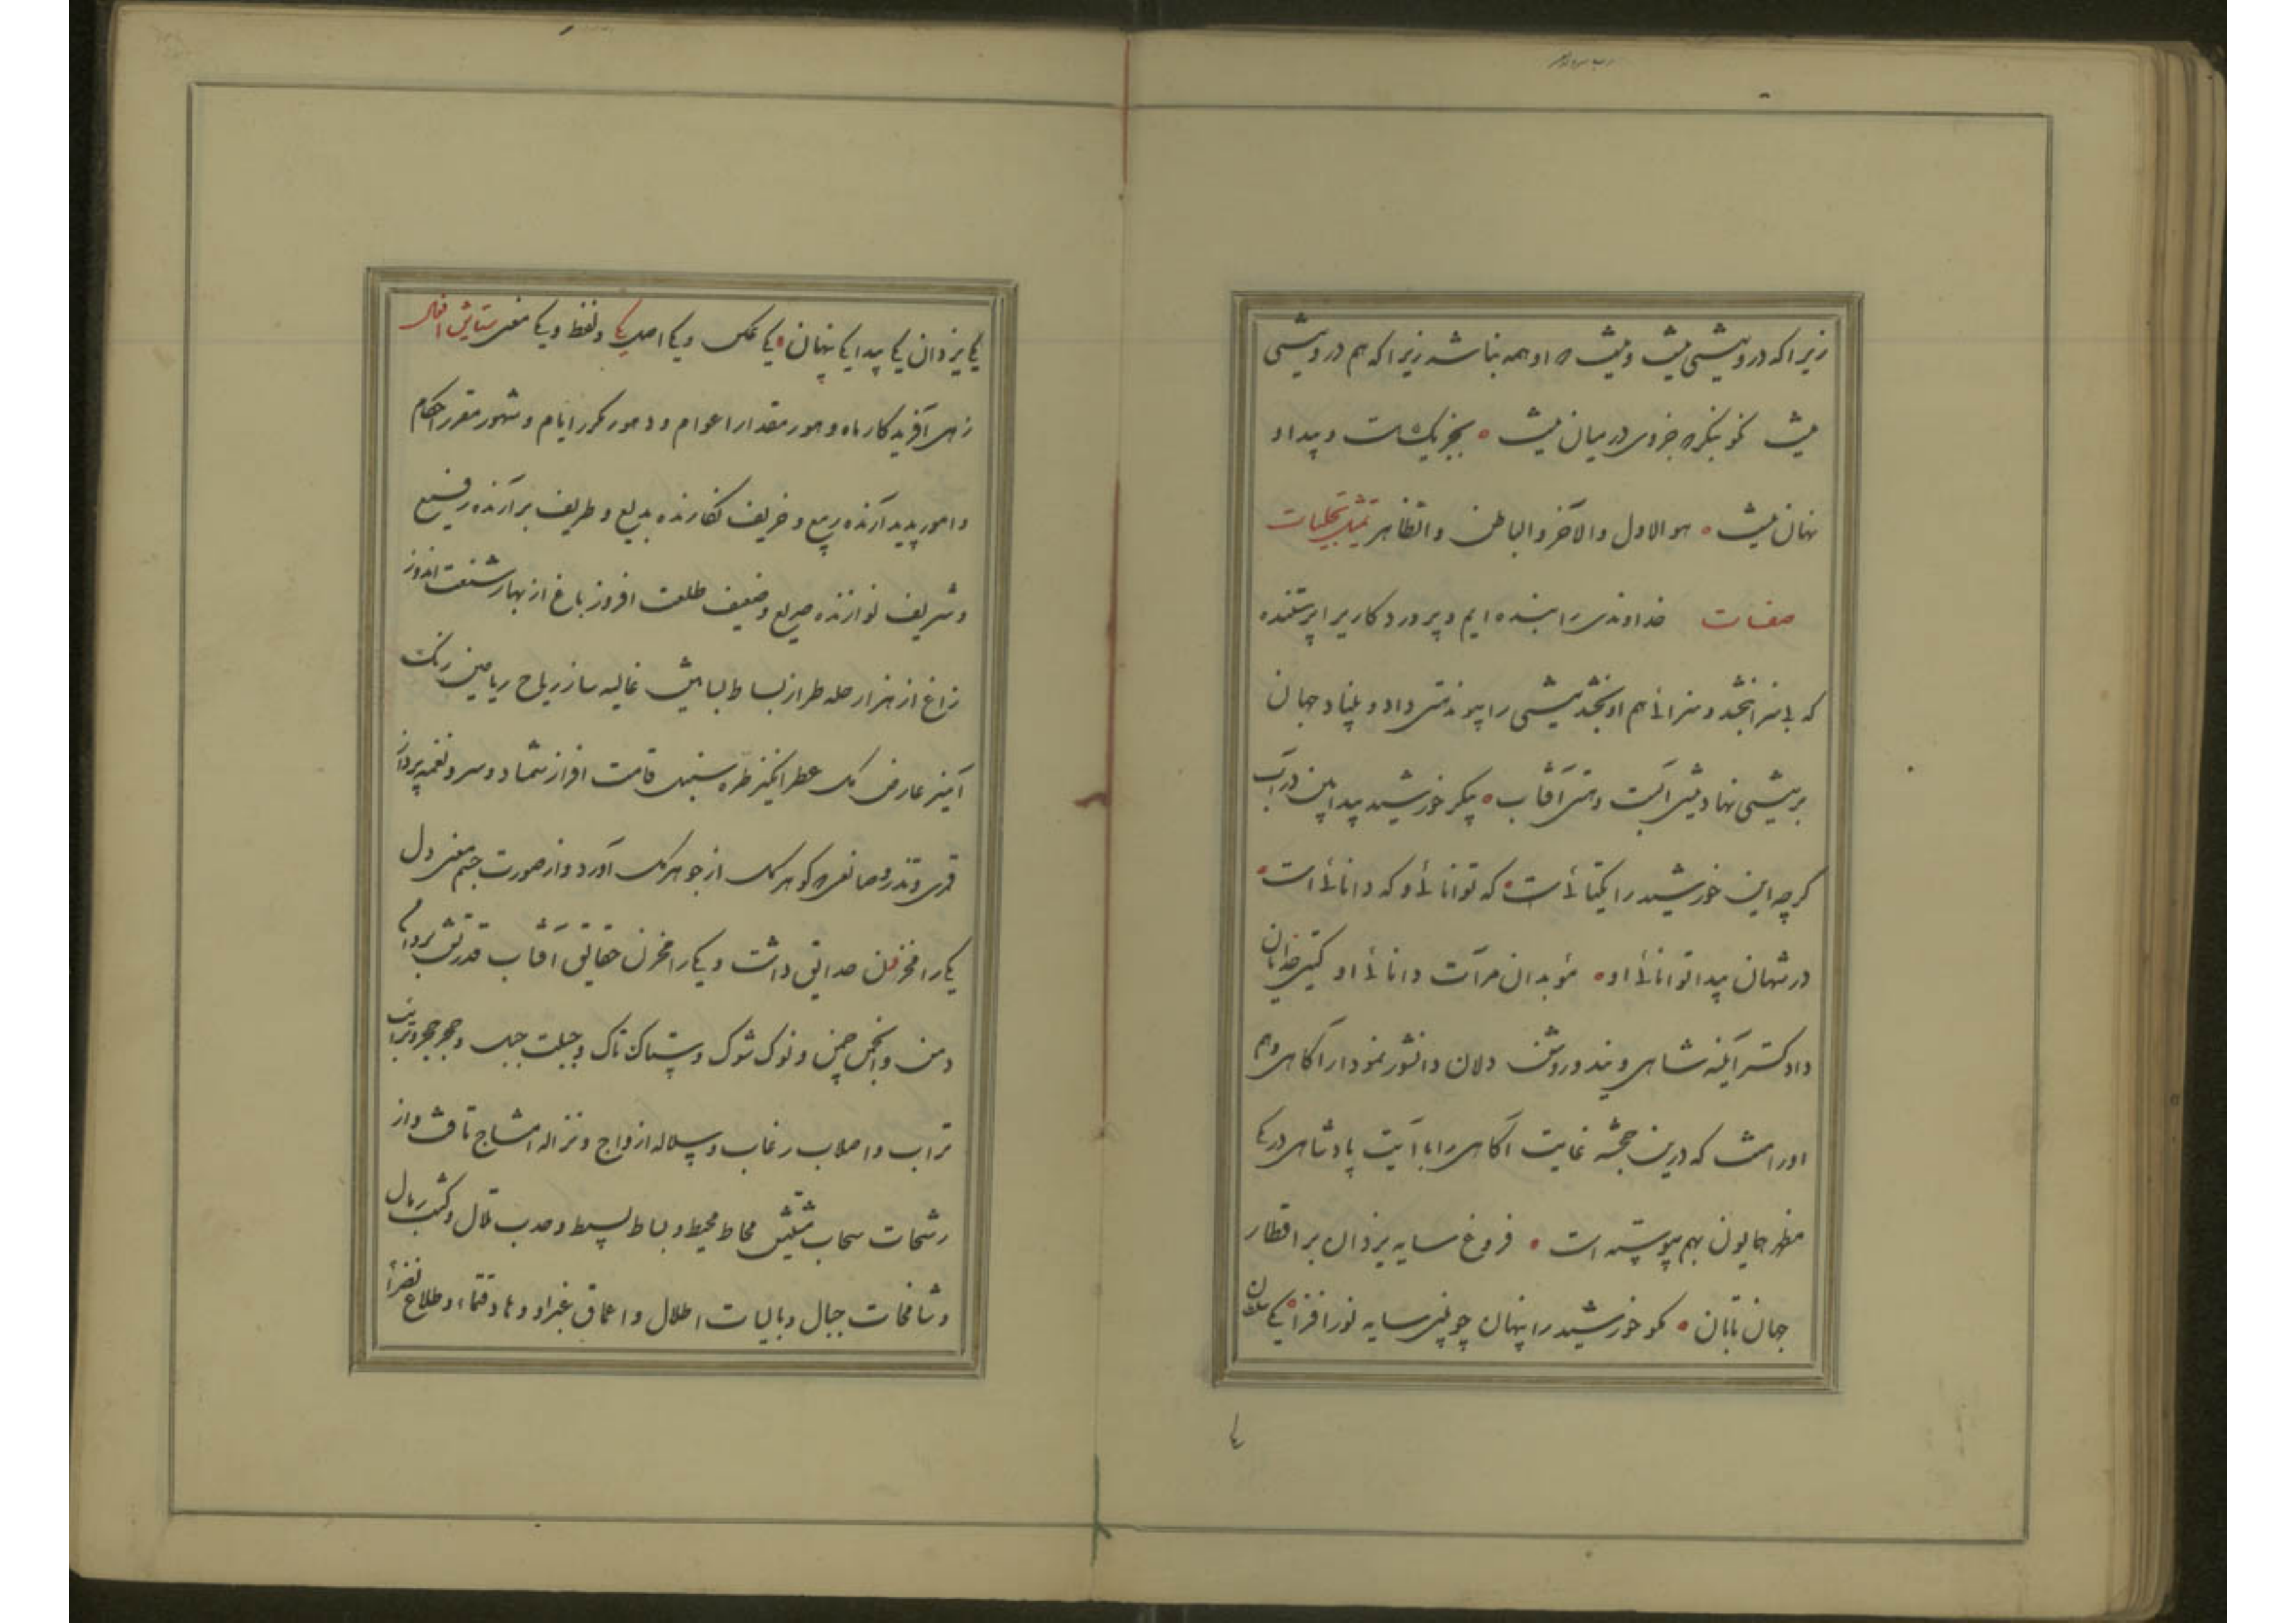 زیرا که در ویشی نیست و نیست او همه بناشد زیرا که هم در ویشی
نیست نکو بنگر جزوی در میان نیست بجز یک نیست و پیدا و
نهان نیست هو الاول والآخر والباطن والظاهر تمثیل تجلیات
صفات خداوندی را بنده ایم و پروردگاریرا پرستنده
که بی سزا بخشد و سزائی هم او بخشد نیستی را پیوند هستی داد و بنیاد جهان
بر نیستی نهاد نیستی آبست و هستی آفتاب پیکر خورشید پیدا بین در آب
گرچه این خورشید را یکتائی است که توانائی و که دانائی است
در شهان پیدا توانائی او مؤبدان مرآت دانائی او گیتی خدایان
دادگستر آینه شاهی ویند و روشن دلان دانشور نمودار آگاهی و هم
اوراست که درین خجسته غایت آگاهی را با آیت پادشاهی در یک
مظهر همایون بهم پیوسته است فروغ سایه یزدان بر اقطار
جهان تابان نکو خورشید را پنهان چو بینی سایه نور افزا یکی سلطان
یکی یزدان یکی پیدا یکی پنهان یکی عکس و یکی اصل یکی لفظ و یکی معنی ستایش افعال
زهی آفریدگار ماه و هور مقدار اعوام و دهور مکرر ایام و شهور مقرر احکام
و امور پدید آرنده ربیع و خریف نگارنده بدیع و ظریف برآرنده رفیع
و شریف نوازنده صریع و ضعیف طلعت افروز باغ از بهار شنعت اندوز
زاغ از هزار حله طراز بساط بساتین غالیه ساز ریاح ریاحین رنگ
آمیز عارض گل عطرانگیز طره سنبل قامت افراز شمشاد و سرو نغمه پرداز
قمری و تذرو صانعی که گوهر گل از جوهر گل آورد و از صورت جسم معنی دل
یکی را مخزن حدایق داشت و یکی را مخزن حقایق آفتاب قدرتش بر دام
و من و انجم چمن و نوک شوک و ستاک تاک و جبلت جبل و حجر حجر و تراب
تراب و اصلاب رغاب و سلاله ازواج و نزاله امشاج تافت و از
رشحات سحاب مشیتش محاط محیط و بساط بسیط و حدب تلال و کثب رمال
و شامخات جبال و بالیات اطلال و اعماق غبرا و